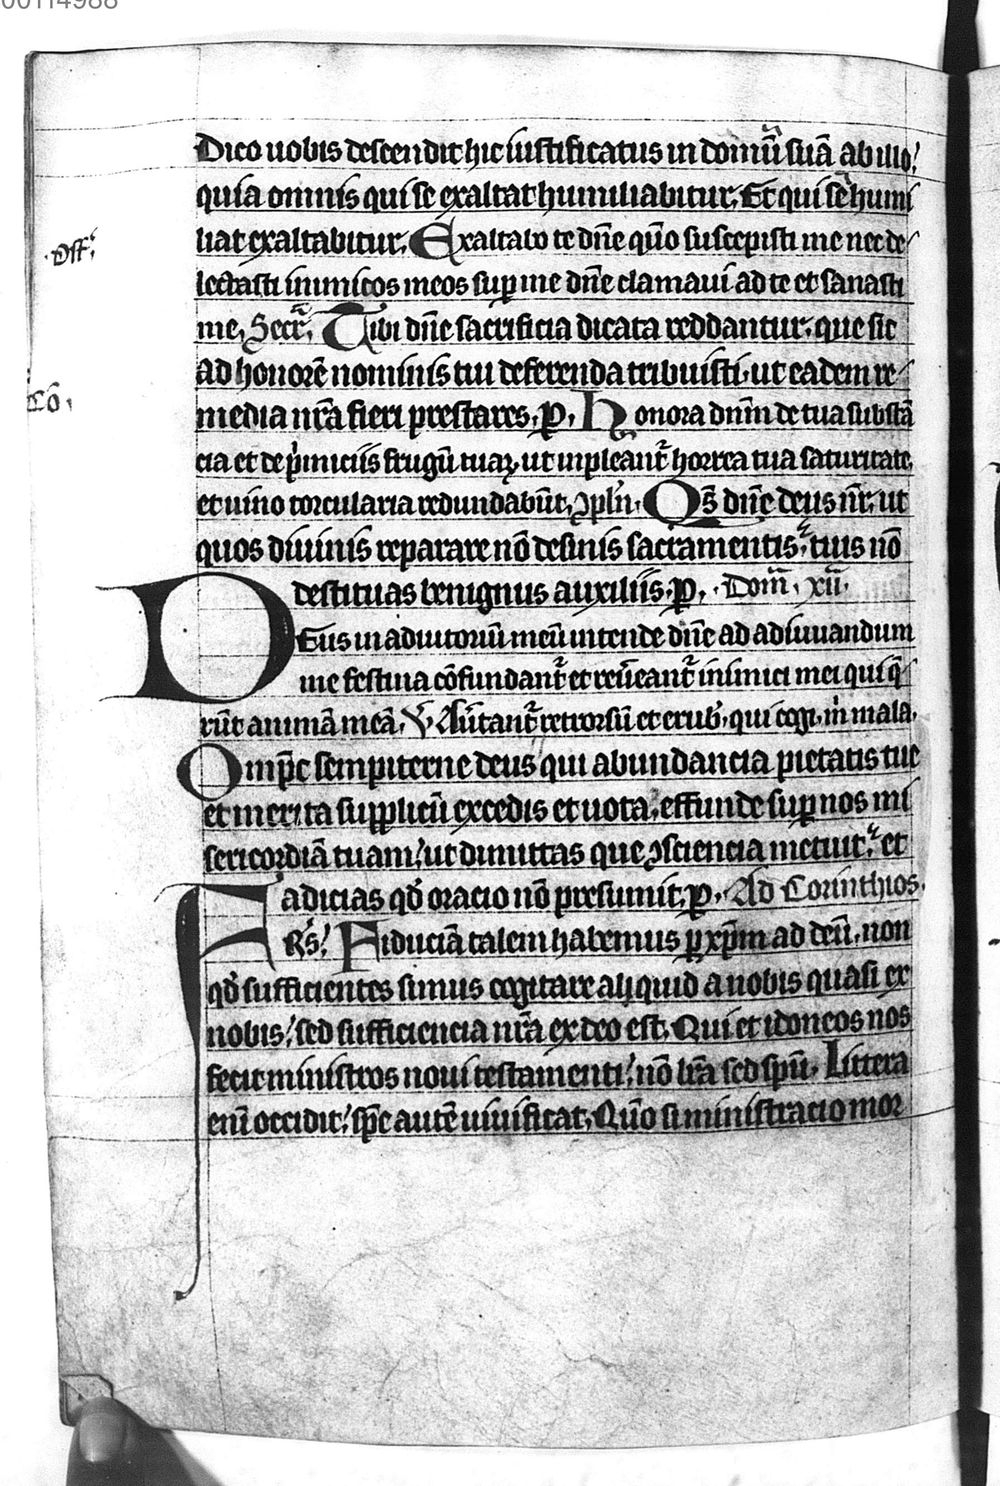 00114988
Dico uobis descendit hic iustificatus in domū suā ab illo!
quia omnis qui se exaltat humiliabitur. Et qui se humi
·Off·
liat exaltabitur. Exaltabo te dn̄e qm̄o suscepisti me nec de
lectasti inimicos meos sup me dn̄e clamaui ad te et sanasti
me, Secr̄, Tibi dn̄e sacrificia dicata reddantur, que sic
ad honorē nominis tui deferenda tribuisti, ut eadem re
Cō,
media nr̄a fieri prestares, p, Honora dnm̄ de tua substā
cia et de p̍miciis frugū tuaꝝ, ut inpleant̄ horrea tua saturitate,
et uino torcularia redundabūt, ꝯpln̄, Qs̄ dn̄e deus nr̄, ut
quos diuinis reparare nō desinis sacramentis, tuis nō
destituas benignus auxiliis, p, · Dom̄, xii·
DEus in adiutoriū meū intende dn̄e ad adiuuandum
me festina cōfundant̄ et reu̅eant̄ inimici mei qui q̄
rūt animā meā, V, Au̅tant̄ retrorsū et erub̄, qui cogi, m̍ mala,
Omp̄c sempiterne deus qui abundancia pietatis tue
et merita supplicū excedis et uota, effunde sup nos mi
sericordiā tuam, ut dimittas que ꝯsciencia metuit, et
adicias qd̄ oracio nō presumit, p, Ad Corinthios,
FRs̄! Fiduciā talem habemus p xp̄m ad deū, non
qd̄ sufficientes simus cogitare aliquid a nobis quasi ex
nobis, sed sufficiencia nr̄a ex deo est, Qui et idoneos nos
fecit ministros noui testamenti, nō lr̄a sed spū, Littera
enī occidit, spc̄ autē uiuificat, Qm̄o si ministracio mor